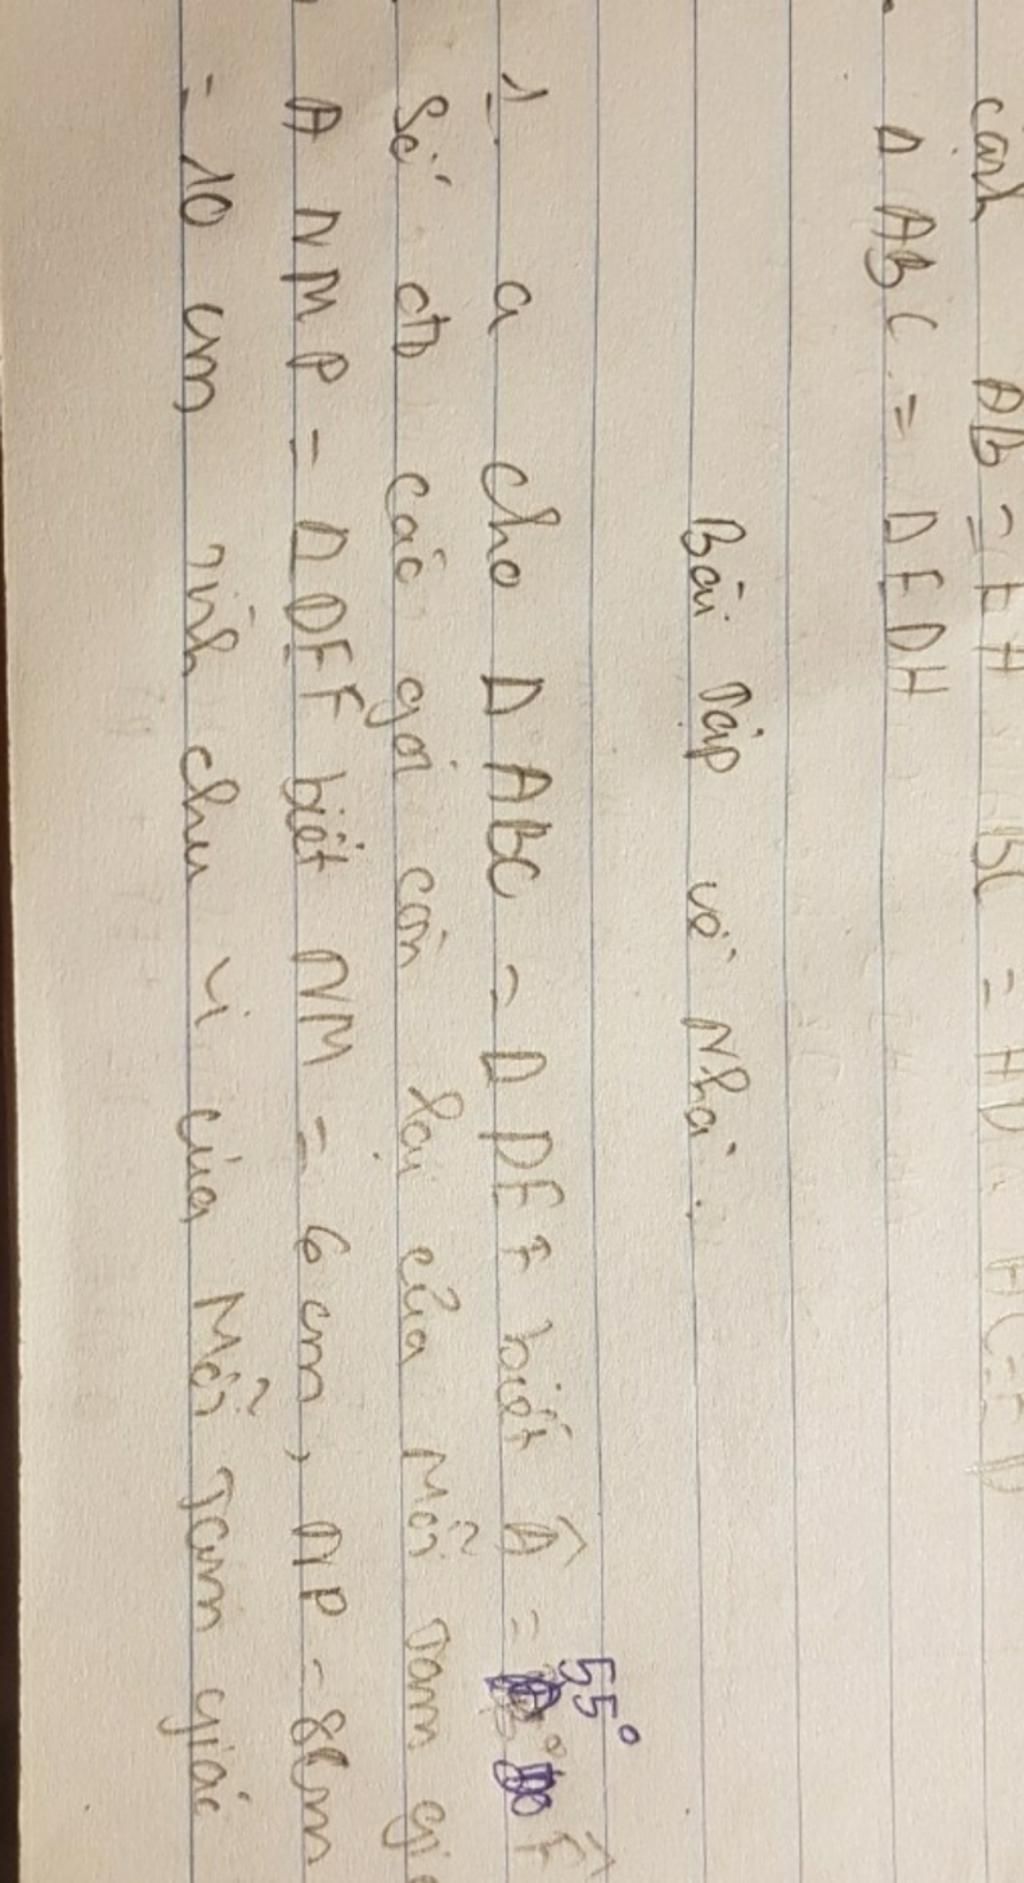 cạnh AB = EA BC = HD AC = ED
Δ ABC = Δ EDH
Bài tập về nhà.
1. a cho Δ ABC = Δ DEF biết Â = 55° F̂
số đo các góc còn lại của mỗi tam gi
Δ NMP = Δ DEF biết NM = 6 cm, NP = 8cm
= 10 cm tính chu vi của mỗi tam giác